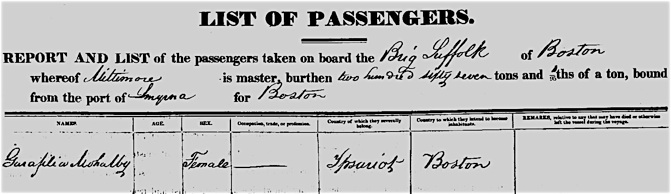 LIST OF PASSENGERS.
REPORT AND LIST of the passengers taken on board the Brig Suffolk of Boston
whereof Miltimore is master, burthen two hundred sixty seven tons and ths of a ton, bound
from the port of Smyrna for Boston
NAMES. AGE. SEX. Occupation, trade, or profession. Country of which they severally belong. Country to which they intend to become inhabitants. REMARKS, relative to any that may have died or otherwise left the vessel during the voyage.
Garafilia Mohalby Female Ipsariot Boston